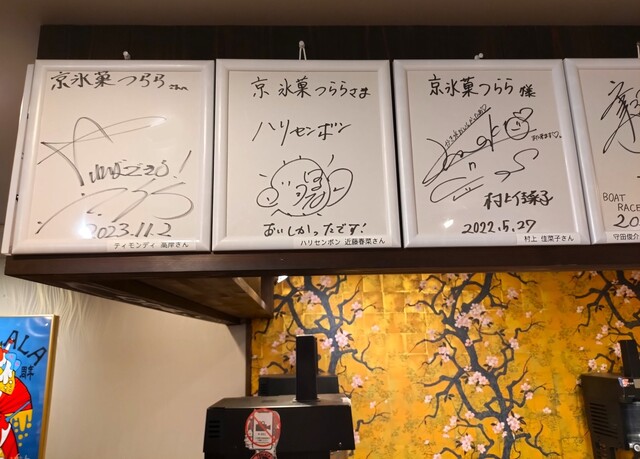 京氷菓つらら さんへ
2023.11.2
ティモンディ 高岸さん
京氷菓つららさま
ハリセンボン
おいしかったです!
ハリセンボン 近藤春菜さん
京氷菓つらら 様
村上佳菜子
2022.5.27
村上 佳菜子さん
BOAT
RACE
20
守田俊介
ALA
周年